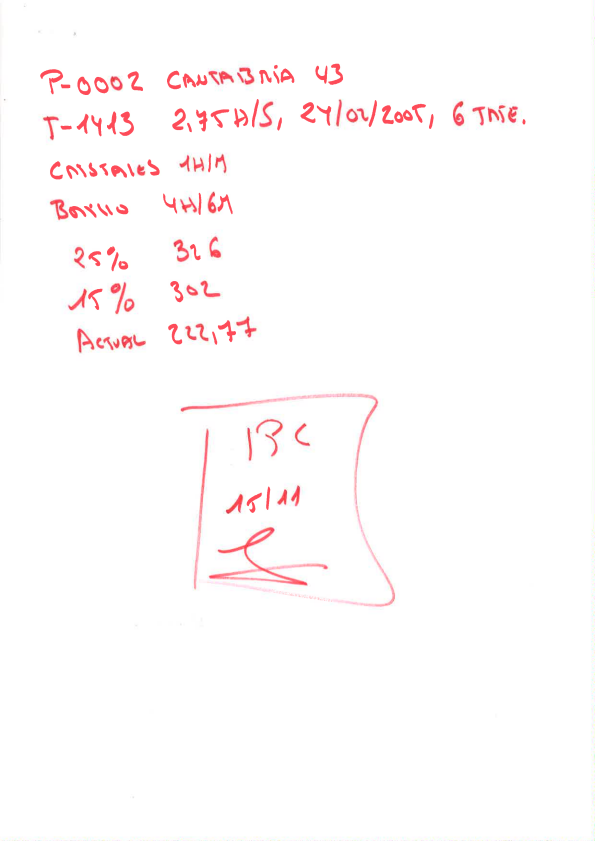 P-0002 CANTABRIA 43
T-1413 2,75H/S, 24/02/2005, 6 TATE.
CRISTALES 1H/M
BARRIO 4H/6M
25% 326
15% 302
ACTUAL 222,77
BC
15/11